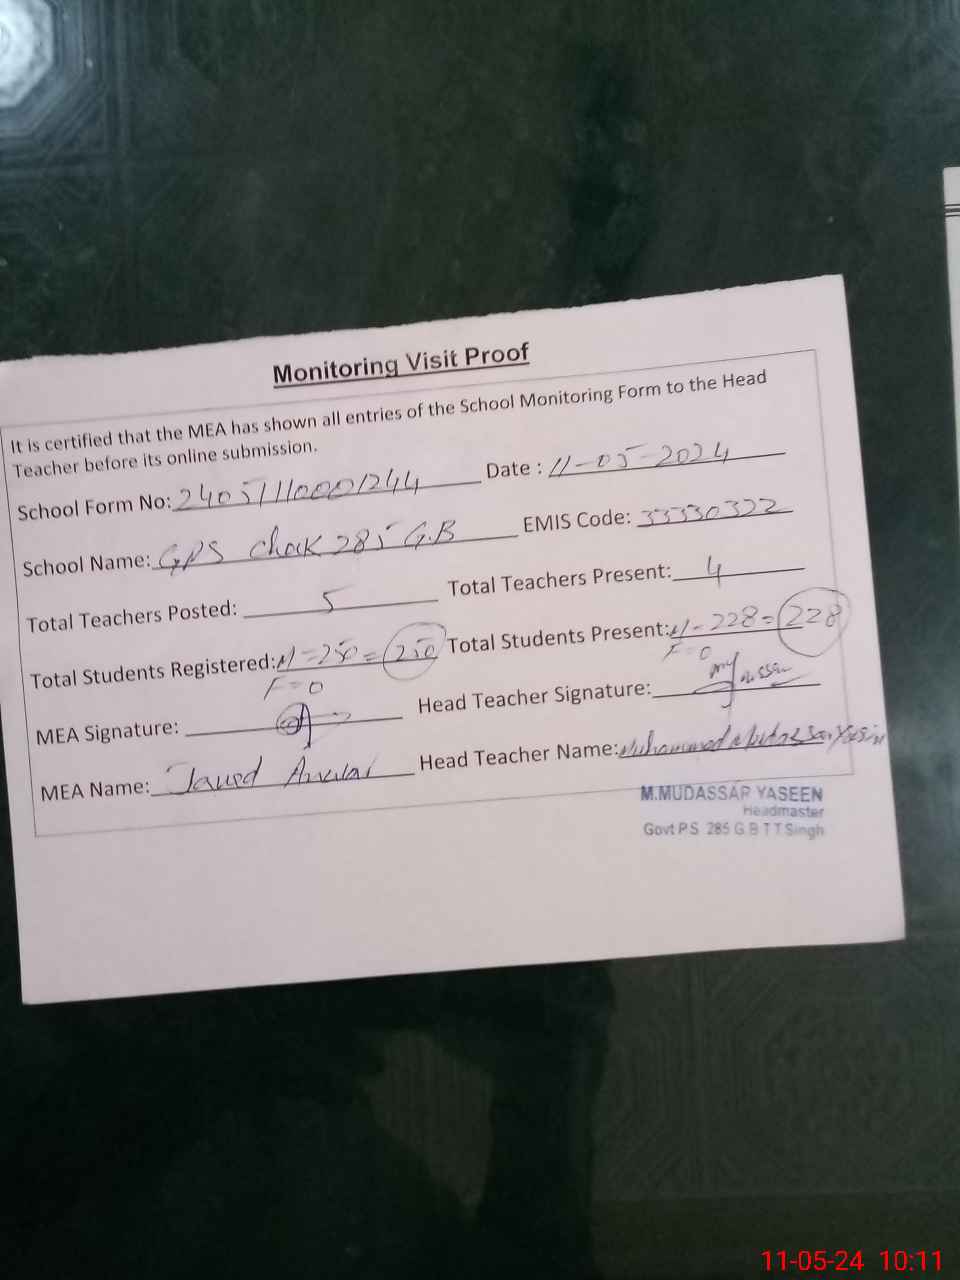 Monitoring Visit Proof
It is certified that the MEA has shown all entries of the School Monitoring Form to the Head
Teacher before its online submission.
School Form No: 24051110001244 Date : 11-05-2024
School Name: GPS Chack 285 G.B EMIS Code: 33330322
Total Teachers Posted: 5 Total Teachers Present: 4
Total Students Registered: N=250 = 250 Total Students Present: N-228= 228
F=0 F=0
MEA Signature: Head Teacher Signature:
MEA Name: Javed Anwar Head Teacher Name: Muhammad Mudassar Yasin
M.MUDASSAR YASEEN
Headmaster
Govt P.S 285 G B T T Singh
11-05-24 10:11